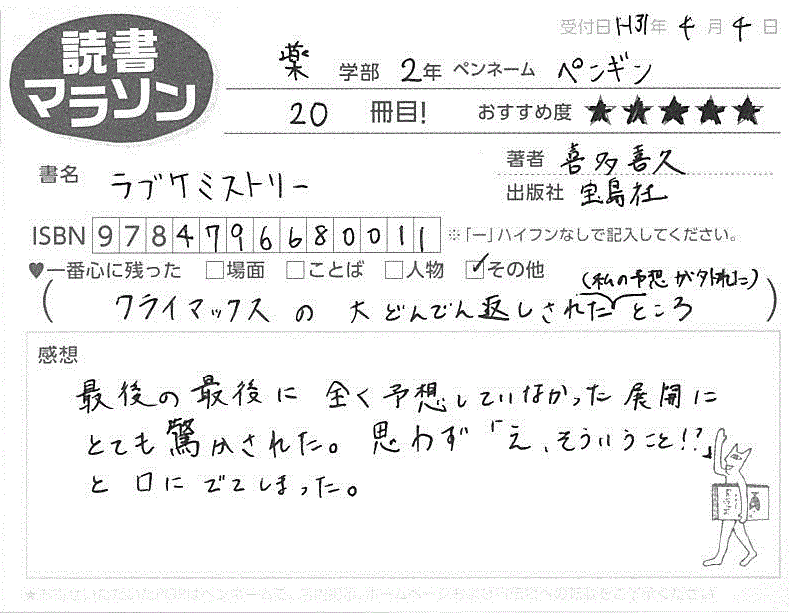 読書
マラソン
受付日 H31年 4月 4日
薬 学部 2年 ペンネーム ペンギン
20 冊目! おすすめ度 ★★★★★
書名 ラブケミストリー
著者 喜多喜久
出版社 宝島社
ISBN 9784796680011 ※「ー」ハイフンなしで記入してください。
♥一番心に残った □場面 □ことば □人物 ☑その他
(私の予想が外れた)
( クライマックスの大どんでん返しされたところ )
感想
最後の最後に全く予想していなかった展開に
とても驚かされた。思わず「え、そういうこと!?」
と口にでてしまった。